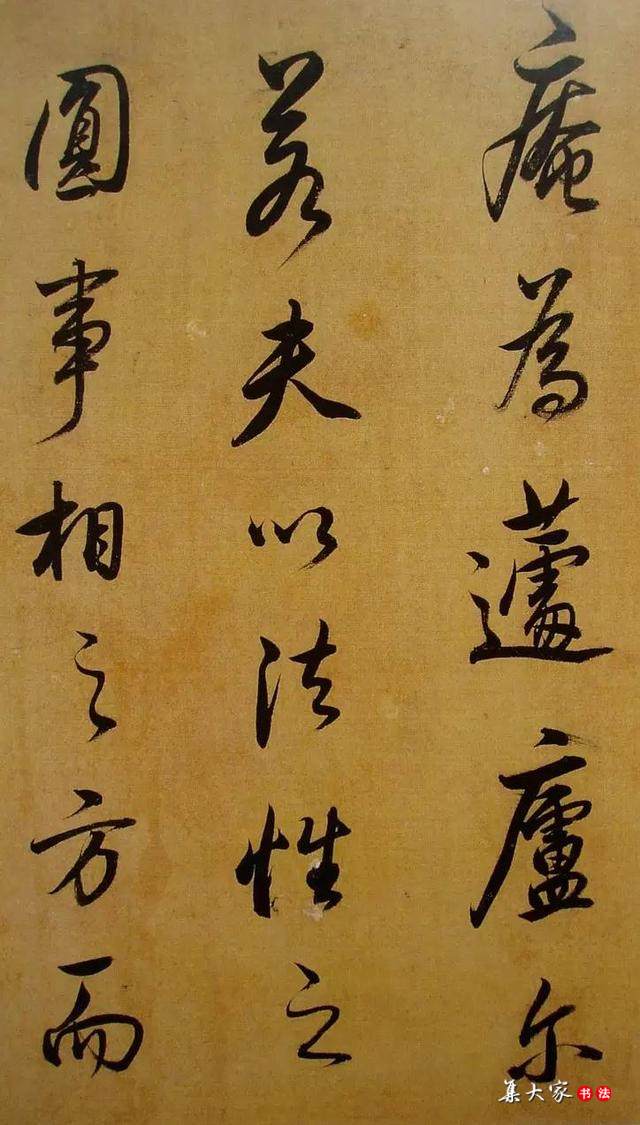 庵為蘧廬尔
若夫以法性之
圓事相之方而
集大家书法